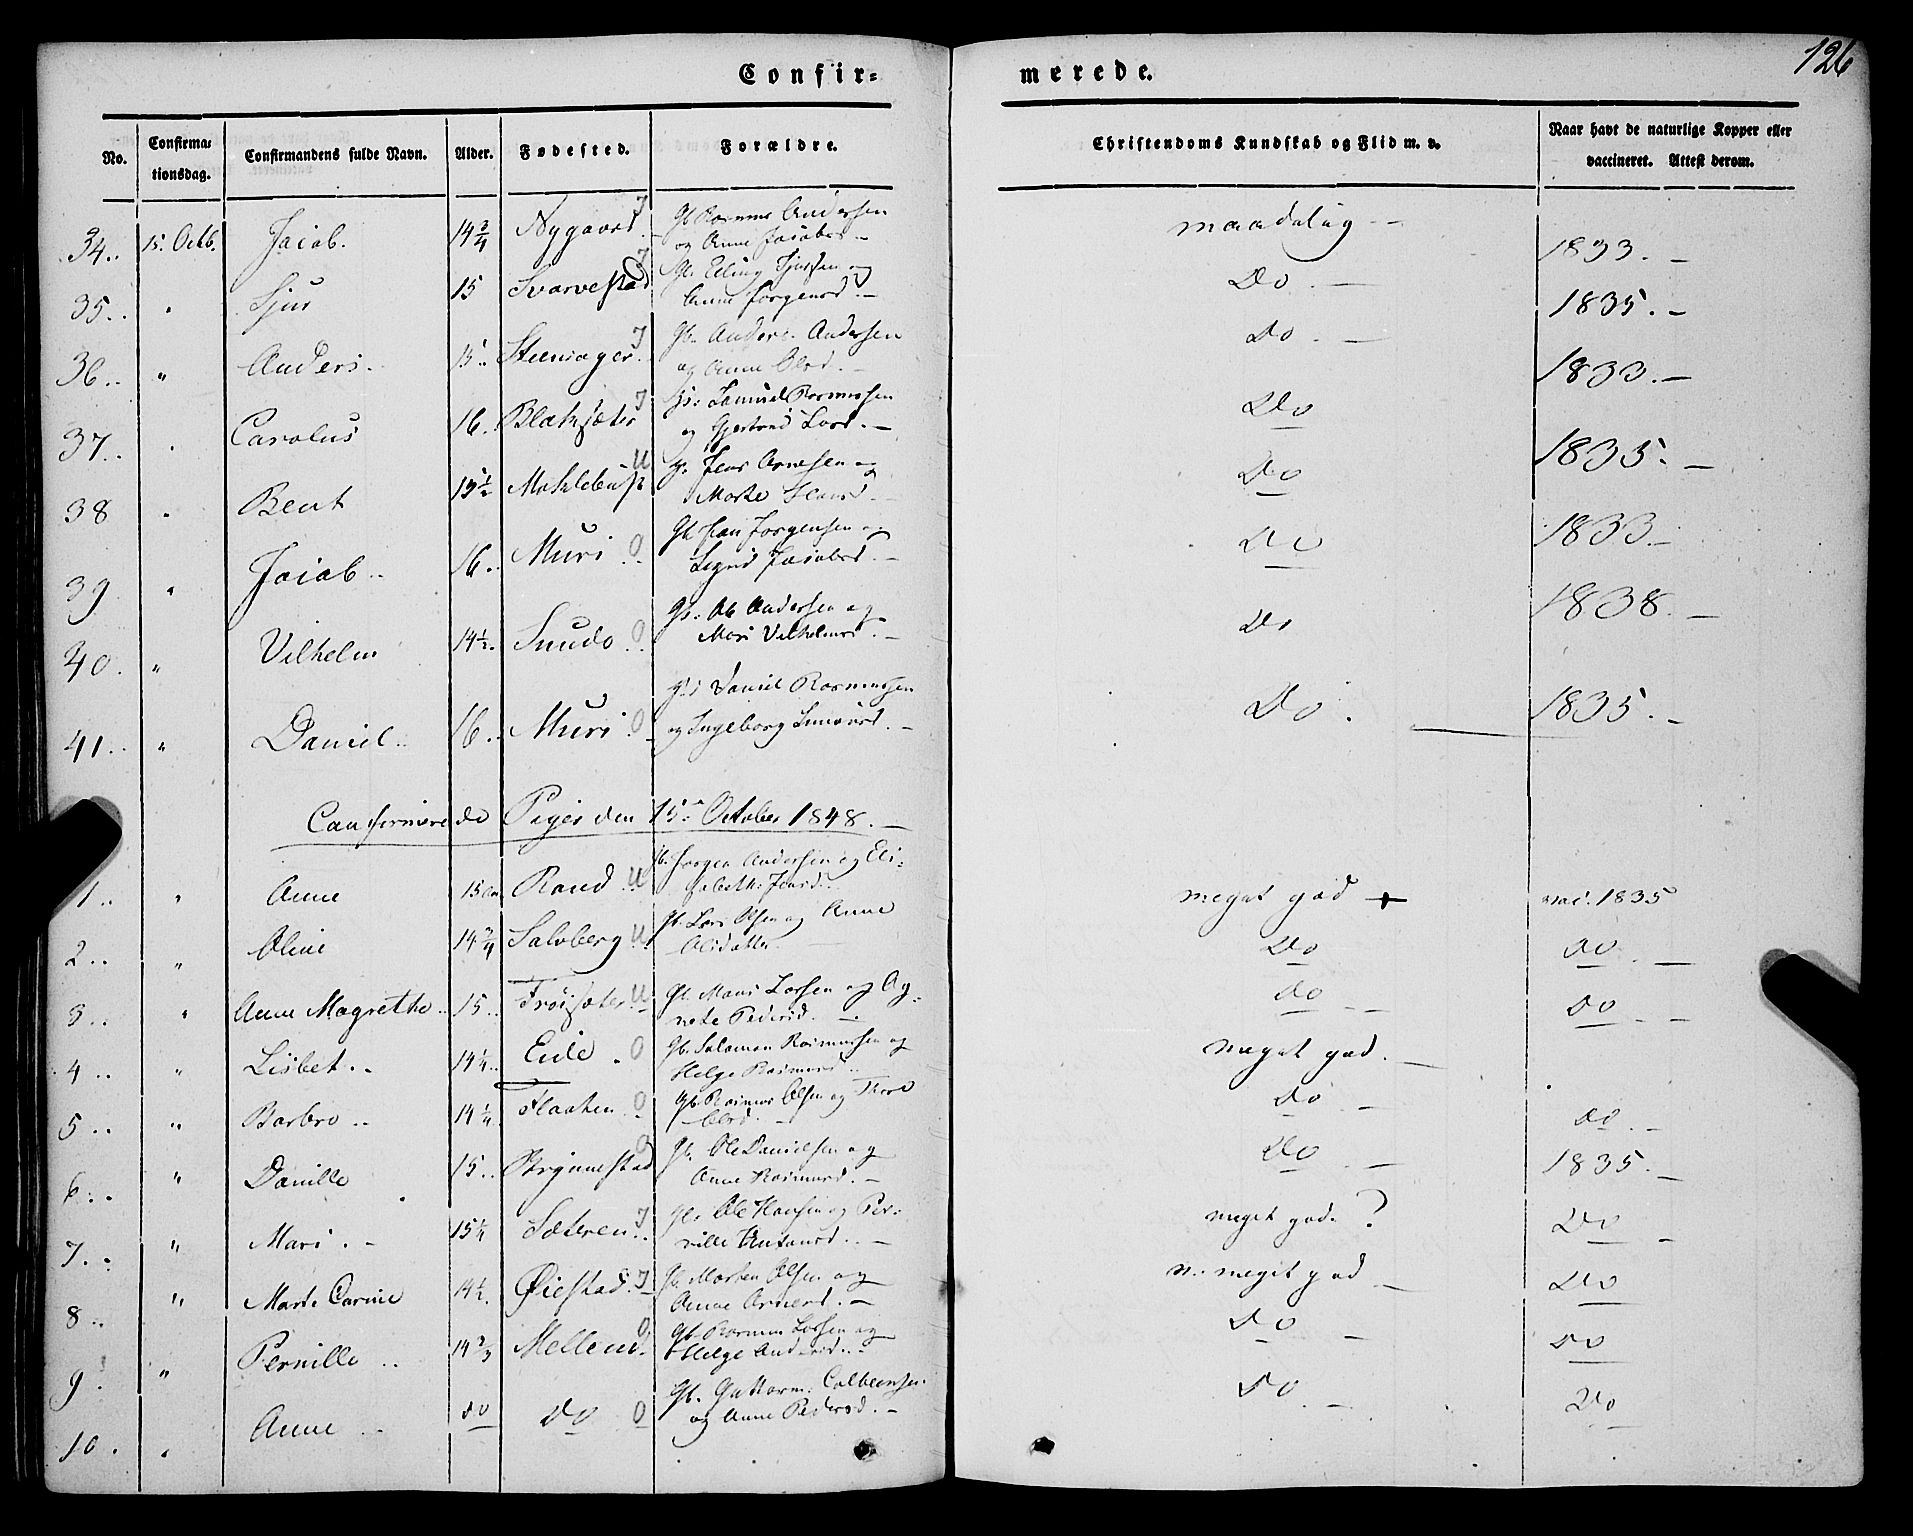 126
Confir- merede.
No. Confirma-tionsdag. Confirmandens fulde Navn. Alder. Fødested. Forældre. Christendoms Kundskab og Flid m. v. Naar havt de naturlige Kopper eller vaccineret. Attest derom.
34.. 15. Octb. Jacob. 14 3/4 Nygaard. I Gb Rasmus Andersen og Anne Jacobsd. — maadelig — 1833. —
35.. " Sjur 15 Svarvestad I Gb. Elling Sjursen og Anne Jørgensd. — Do. — 1835. —
36.. " Anders. 15.. Steensager. I Gb. Anders Andersen og Anne Olsd. — Do. — 1833. —
37.. " Carolus 16. Blaksæter I Samuel Rasmussen og Gjertrud Larsd. — Do 1835. —
38 " Bent 15 1/2 Maklebust U Jens Arnesen og Marte Hansd. Do 1833. —
39 " Jacob.. 16.. Muri O Gb Hans Jørgensen og Signi Jacobsd. — Do 1838. —
40. " Vilhelm 14 1/2. Sunde O Gb. Ole Andersen og Mari Vilhelmsd. — Do
41.. " Daniel.. 16.. Muri O Daniel Rasmussen og Ingeborg Simonsd. — Do. 1835. —
Confirmerede Piger den 15de October 1848. —
1.. " Anne 15 Rand U Gb. Jørgen Andersen og Elisabeth Jensd. meget god + vac. 1835
2.. " Oline 14 3/4 Solvberg U Gb. Lars Olsen og Anne Olsdatter Do do. —
3.. " Anne Magrethe.. 15.. Frøisæter U Gb. Mons Larsen og Agnete Pedersd. — do — do —
4.. " Lisbet.. 14 1/4.. Eide. O Gb. Salamon Rasmussen og Helge Rasmusd.. meget god. —
5.. " Barbro.. 14 1/4 Flaaten. O Gb. Rasmus Olsen og Olsd. — do — do. —
6.. " Danille 15.. Brynnestad O Gb. Ole Danielsen og Anne Rasmusd. — Do — 1835. —
7.. " Mari. - 15 1/4 Sæteren.. I Ole Hansen og Pernille.. — meget god. ? Do —
8.. " Marte Carine 14 1/2. Øiestad. I Gb. Morten Olsen og Anne Arnesd. — n. meget god — Do
9. " Pernille.. 14 2/3 Mellem. O Gb. Rasmus Larsen og Helge Andersd... Do — do
10. " Anne.. do do O Gb. Guttorm Colbensen og Anne Pedersd. — do. — Do